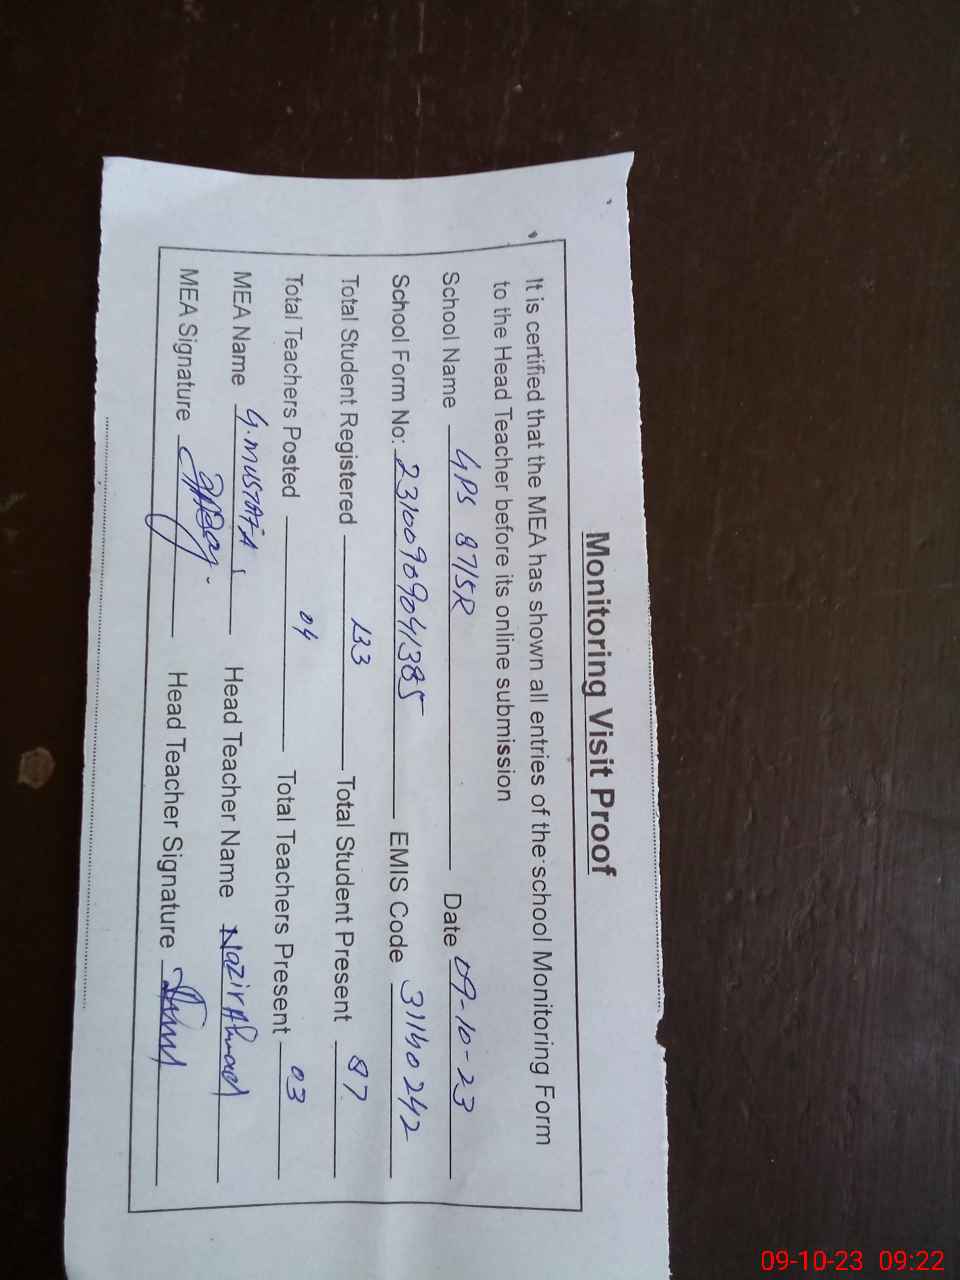 Monitoring Visit Proof
It is certified that the MEA has shown all entries of the school Monitoring Form
to the Head Teacher before its online submission
School Name GPS 87/5R Date 09-10-23
School Form No: 23100909041385 EMIS Code 31140242
Total Student Registered 133 Total Student Present 87
Total Teachers Posted 04 Total Teachers Present 03
MEA Name G.MUSTAFA Head Teacher Name Nazir Ahmad
MEA Signature Head Teacher Signature
09-10-23 09:22